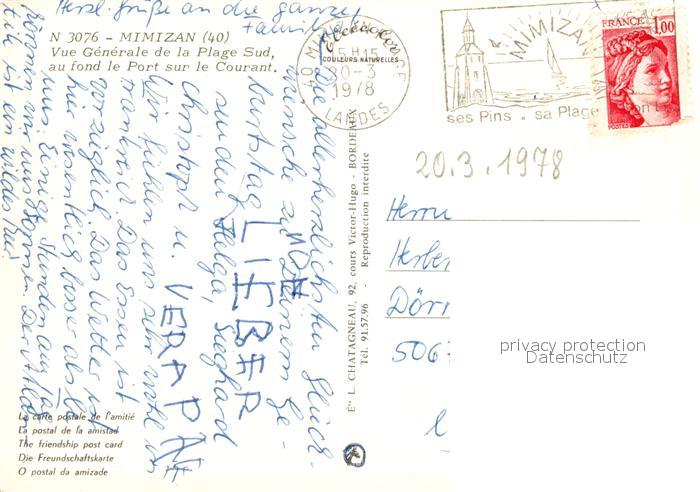 Herzl. Grüße an die ganze
Familie
N 3076 - MIMIZAN (40)
Vue Générale de la Plage Sud,
au fond le Port sur le Courant.
COULEURS NATURELLES
15 H 15
20-3
1978
LANDES
MIMIZAN
ses Pins . sa Plage
FRANCE 1,00
POSTES
20.3.1978
Die allerherzlichsten Glück-
wünsche zu Deinem Ge-
burtstag
senden Helga, Sieghard
Christoph u.
LIEBER
VERA
Wir fühlen uns sehr wohl in
Das Essen ist
vorzüglich. Das Wetter ist
hier wesentlich besser als bei
uns. Einige Stunden am Tag
können wir uns sonnen. Der Atlan-
tik ist ein wildes
Ets L. CHATAGNEAU, 92, cours Victor-Hugo - BORDEAUX
Tél. 91.57.96 - Reproduction interdite
Herrn
Dörr
506
privacy protection
Datenschutz
La carte postale de l'amitié
La postal de la amistad
The friendship post card
Die Freundschaftskarte
O postal da amizade